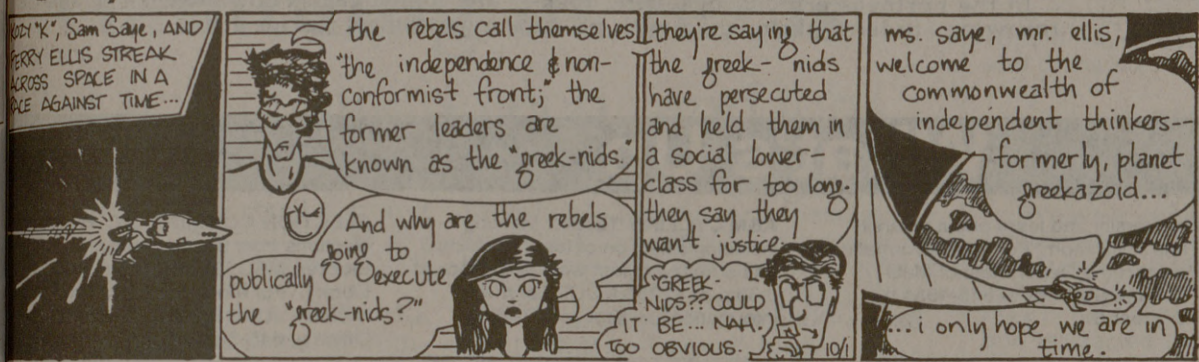 "K", Sam Saye, AND
ERRY ELLIS STREAK
ACROSS SPACE IN A
RACE AGAINST TIME...
the rebels call themselves
"the independence & non-
conformist front;" the
former leaders are
known as the "greek-nids."
And why are the rebels
going to
publically execute
the "greek-nids?"
they're saying that
the greek-nids
have persecuted
and held them in
a social lower-
class for too long.
they say they
want justice.
"GREEK-
NIDS?? COULD
IT BE... NAH.
TOO OBVIOUS.
10/1
ms. saye, mr. ellis,
welcome to the
commonwealth of
independent thinkers--
formerly, planet
greekazoid...
...i only hope we are in
time.